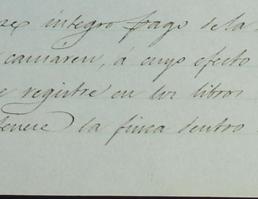 integro pago de la
causaren, á cuyo efecto
registre en los libros
la finca dentro